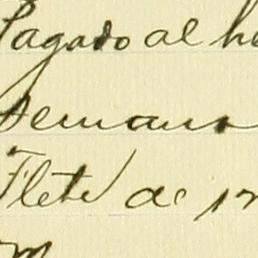 Pagado al he
Semana
Flete de